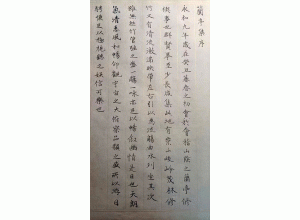 蘭亭集序
永和九年歲在癸丑暮春之初會於會稽山陰之蘭亭修
禊事也群賢畢至少長咸集此地有崇山峻嶺茂林修
竹又有清流激湍映帶左右引以為流觴曲水列坐其次
雖無絲竹管弦之盛一觴一詠亦足以暢敘幽情是日也天朗
氣清惠風和暢仰觀宇宙之大俯察品類之盛所以遊目
騁懷足以極視聽之娛信可樂也